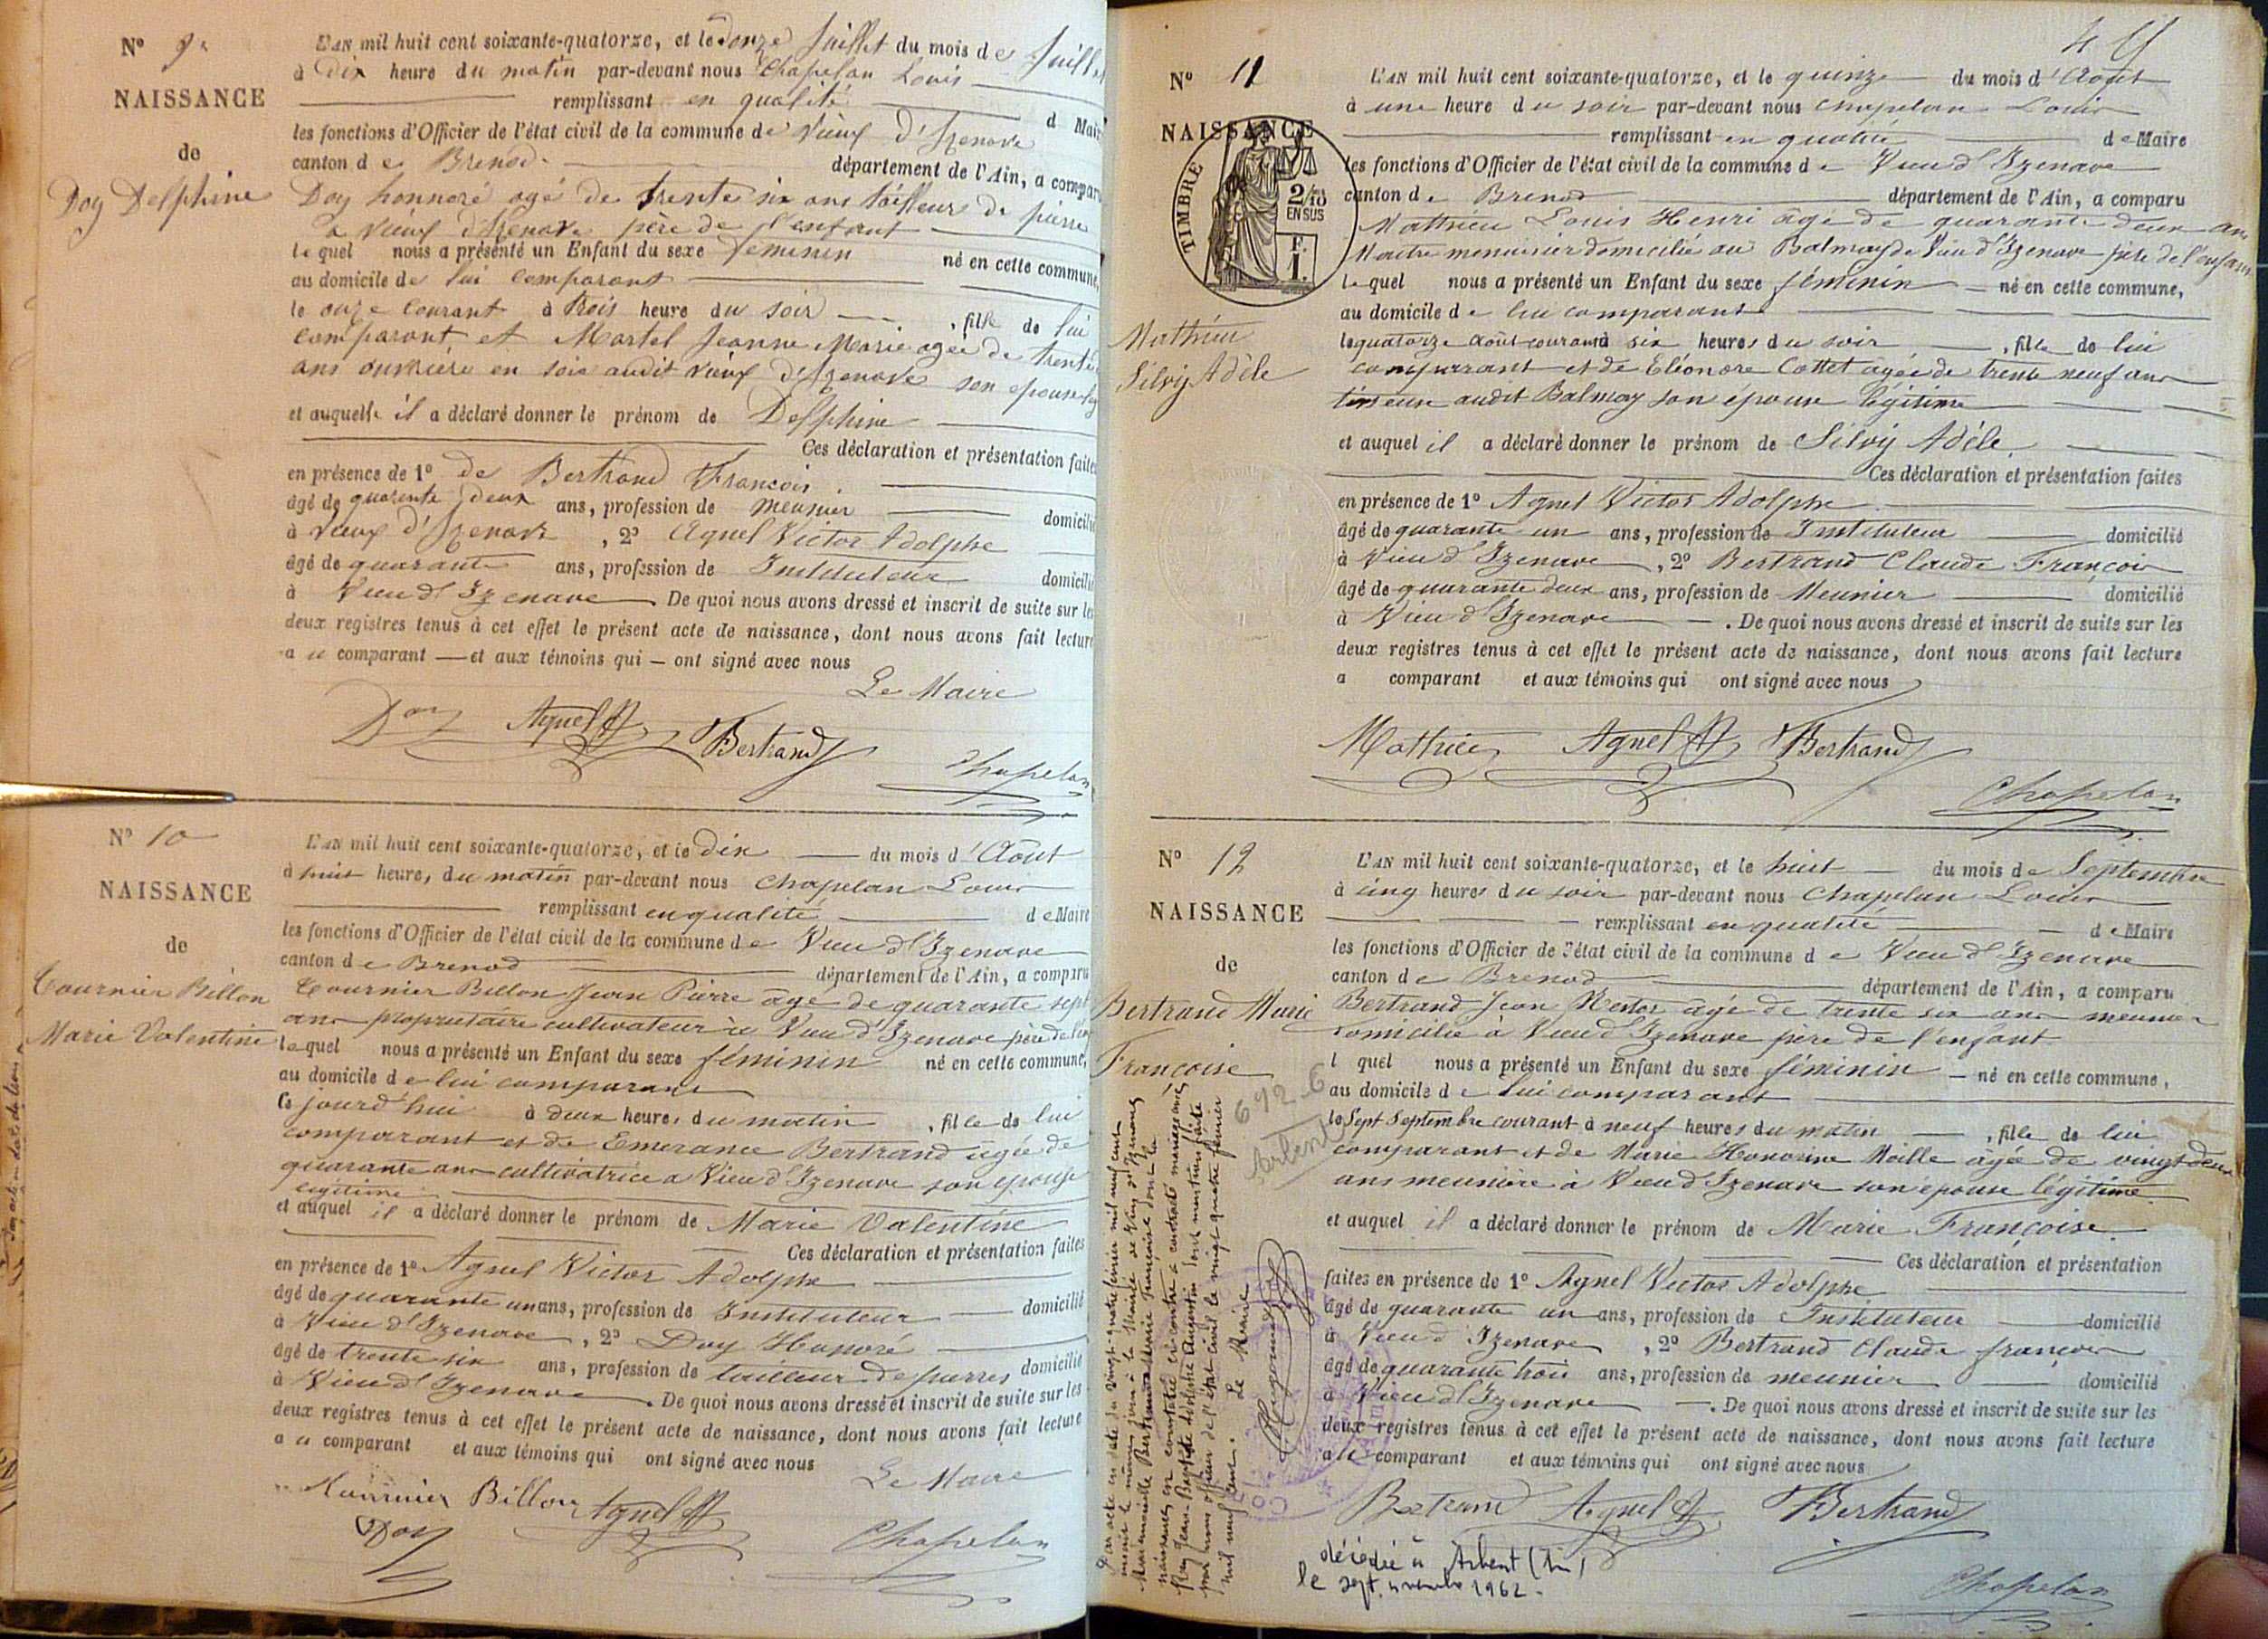 N° 9
NAISSANCE
de
Doy Delphine
L'AN mil huit cent soixante-quatorze, et le douze Juillet du mois de Juillet
à Dix heure du matin par-devant nous Chapelan Louis
remplissant en qualité de Maire
les fonctions d'Officier de l'état civil de la commune de Vieux d'Izenave
canton de Brenod département de l'Ain, a comparu
Doy honnoré agé de trente six ans tailleur de pierre
a Vieux d'Izenave père de l'enfant
lequel nous a présenté un Enfant du sexe féminin né en cette commune,
au domicile de lui comparant
le onze courant à trois heure du soir, fille de lui
comparant et Martel Jeanne Marie agée de trente
ans ouvrière en soie audit Vieux d'Izenave son epouse
et auquelle il a déclaré donner le prénom de Delphine
Ces déclaration et présentation faites
en présence de 1° de Bertrand François
âgé de quarente deux ans, profession de meunier domicilié
à Vieux d'Izenave, 2° Agnel Victor Adolphe
âgé de quarante ans, profession de Instituteur domicilié
à Vieu d'Izenave De quoi nous avons dressé et inscrit de suite sur les
deux registres tenus à cet effet le présent acte de naissance, dont nous avons fait lecture
au comparant et aux témoins qui ont signé avec nous
Le Maire
Doy Agnel VA Bertrand
Chapelan
N° 10
NAISSANCE
de
Tournier Billon
Marie Valentine
L'AN mil huit cent soixante-quatorze, et le dix du mois d'Août
à huit heure, du matin par-devant nous Chapelan Louis
remplissant en qualité de Maire
les fonctions d'Officier de l'état civil de la commune de Vieu d'Izenave
canton de Brenod département de l'Ain, a comparu
Tournier Billon Jean Pierre âgé de quarante sept
ans propriétaire cultivateur à Vieu d'Izenave père de l'en
lequel nous a présenté un Enfant du sexe féminin né en cette commune,
au domicile de lui comparant
Ce jourd'hui à deux heure, du matin, fille de lui
comparant et de Emerance Bertrand agée de
quarante ans cultivatrice a Vieu d'Izenave son epouse
légitime
et auquel il a déclaré donner le prénom de Marie Valentine
Ces déclaration et présentation faites
en présence de 1° Agnel Victor Adolphe
âgé de quarante un ans, profession de Instituteur domicilié
à Vieu d'Izenave, 2° Doy Honoré
âgé de trente six ans, profession de tailleur de pierres domicilié
à Vieu d'Izenave. De quoi nous avons dressé et inscrit de suite sur les
deux registres tenus à cet effet le présent acte de naissance, dont nous avons fait lecture
au comparant et aux témoins qui ont signé avec nous
Le Maire
Tournier Billon Agnel VA
Doy
Chapelan
4
N° 11
NAISSANCE
TIMBRE
2/10
EN SUS
F.
1.
Mathieu
Silvy Adèle
L'AN mil huit cent soixante-quatorze, et le quinze du mois d'Août
à une heure du soir par-devant nous Chapelan Louis
remplissant en qualité de Maire
les fonctions d'Officier de l'état civil de la commune de Vieu d'Izenave
canton de Brenod département de l'Ain, a comparu
Mathieu Louis Henri âgé de quarante deux ans
Maitre menuisier domicilié au Balmay de Vieu d'Izenave père de l'enfant
lequel nous a présenté un Enfant du sexe féminin né en cette commune,
au domicile de lui comparant
le quatorze août courant à six heures du soir, fille de lui
comparant et de Eléonore Cottet agée de trente neuf ans
audit Balmay son épouse légitime
et auquel il a déclaré donner le prénom de Silvy Adèle.
Ces déclaration et présentation faites
en présence de 1° Agnel Victor Adolphe
âgé de quarante un ans, profession de Instituteur domicilié
à Vieu d'Izenave, 2° Bertrand Claude François
âgé de quarante deux ans, profession de Meunier domicilié
à Vieu d'Izenave. De quoi nous avons dressé et inscrit de suite sur les
deux registres tenus à cet effet le présent acte de naissance, dont nous avons fait lecture
a comparant et aux témoins qui ont signé avec nous
Mathieu Agnel VA Bertrand
Chapelan
N° 12
NAISSANCE
de
Bertrand Marie
Françoise
L'AN mil huit cent soixante-quatorze, et le huit du mois de Septembre
à cinq heures du soir par-devant nous Chapelan Louis
remplissant en qualité de Maire
les fonctions d'Officier de l'état civil de la commune de Vieu d'Izenave
canton de Brenod département de l'Ain, a comparu
Bertrand Jean Nestor âgé de trente six ans meunier
domicilié à Vieu d'Izenave père de l'enfant
l quel nous a présenté un Enfant du sexe féminin né en cette commune,
au domicile de lui comparant
le Sept Septembre courant à neuf heures du matin, fille de lui
comparant et de Marie Honorine Maille âgée de vingt deux
ans meunière à Vieu d'Izenave son épouse légitime
et auquel il a déclaré donner le prénom de Marie Françoise.
Ces déclaration et présentation
faites en présence de 1° Agnel Victor Adolphe
âgé de quarante un ans, profession de Instituteur domicilié
à Vieu d'Izenave, 2° Bertrand Claude françois
âgé de quarante trois ans, profession de meunier domicilié
à Vieu d'Izenave. De quoi nous avons dressé et inscrit de suite sur les
deux registres tenus à cet effet le présent acte de naissance, dont nous avons fait lecture
au comparant et aux témoins qui ont signé avec nous
Bertrand Agnel VA Bertrand
Chapelan
Par acte en date du vingt quatre février mil neuf cent
inscrit le même jour à la Mairie de Vieu d'Izenave
Mademoiselle Bertrand Marie Françoise dont la
naissance est constatée ci-contre a contracté mariage avec
Jean-Baptiste Augustin dont mention faite
par nous officier de l'état civil le vingt quatre février
mil neuf cent.
Le Maire
692-6
Arbent
décédée à Arbent (Ain)
le sept novembre 1962.